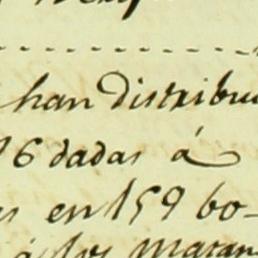 han distribu
16 dadas á
en 159 bo-
á los maran